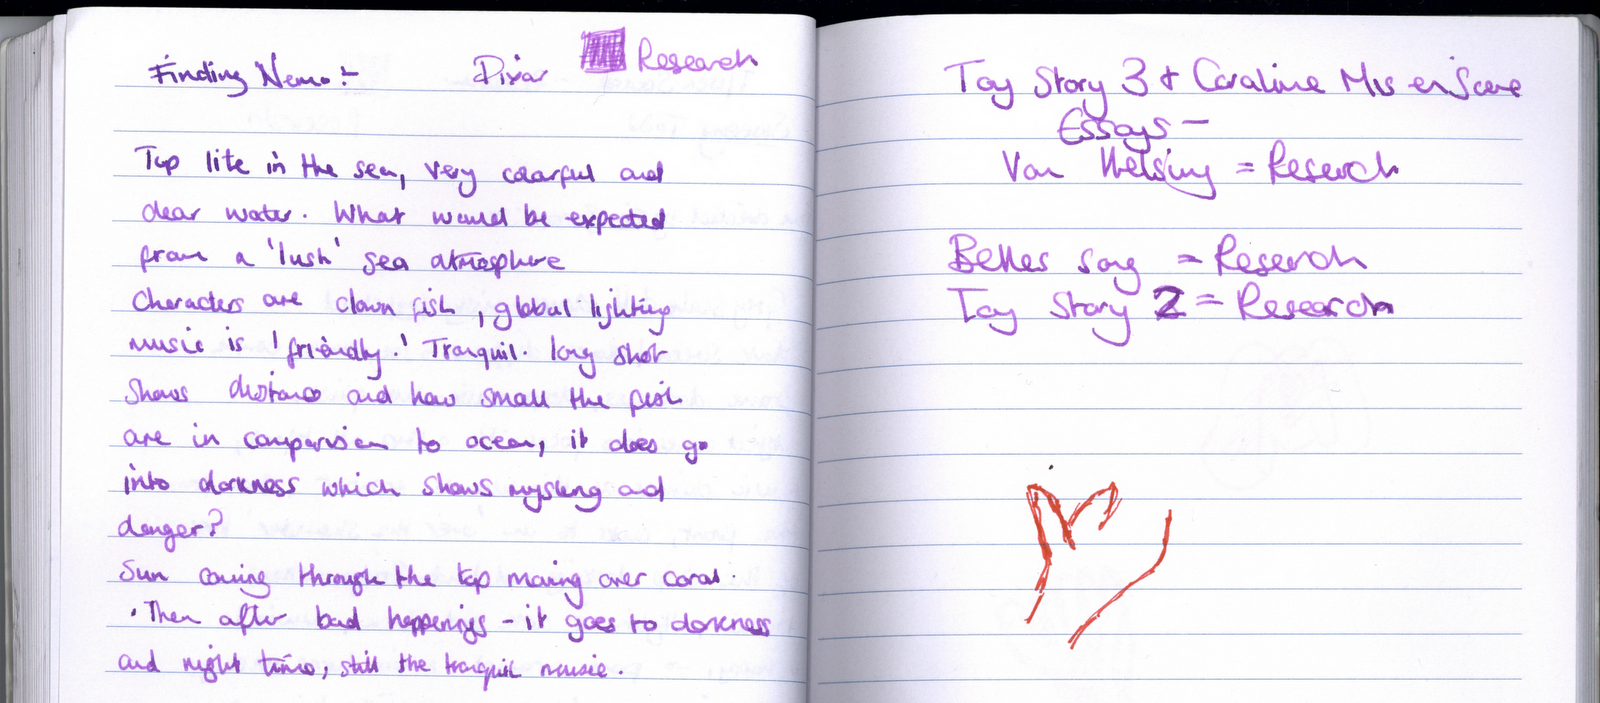 Finding Nemo:- Pixar Research
Top lite in the sea, very colorful and
clear water. What would be expected
from a 'lush' sea atmosphere
Characters are clown fish, global lighting
music is 'friendly.' Tranquil. long shot
shows distance and how small the fish
are in comparision to ocean, it does go
into darkness which shows mystery and
danger?
Sun coming through the top moving over coral.
• Then after bad happenings - it goes to darkness
and night time, still the tranquil music.
Toy Story 3 + Coraline Mis en Scene
Essays -
Van Helsing = Reserch
Belles song = Research
Toy Story 2 = Research